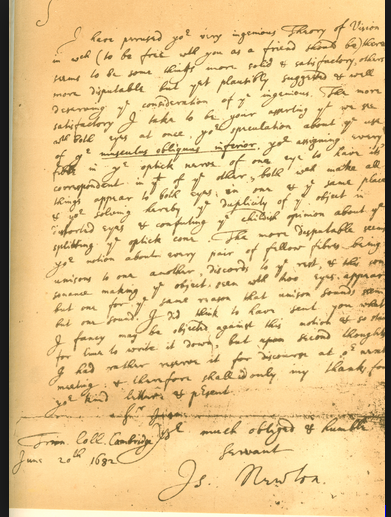 I have perused yor very ingenious Theory of Vision
in wch (to be free wth you as a friend should be) there
seems to be some things more solid & satisfactory, others
more disputable but yet plausibly suggested & well
deserving ye consideration of ye ingenious. The more
satisfactory I take to be your asserting yt we see
wth both eyes at once, yor speculation about ye use
of ye musculus obliquus inferior, yor assigning every
fibre in ye optick nerve of one eye to have its
correspondent in yt of ye other, both wch make all
things appear to both eyes in one & ye same place
& yor solving hereby ye duplicity of ye object in
distorted eyes & confuting ye childish opinion about ye
splitting ye optick cone. The more disputable seems
yor notion about every pair of fellow fibres being
unisons to one another, discords to ye rest, & this con
sonance making ye object seen with two eyes appear
but one for ye same reason that unison sounds seem
but one sound. I did think to have sent you what
I fancy may be objected against this notion & so staid
for time to write it down, but upon second thoughts
I had rather reserve it for discourse at or next
meeting & therefore shall add only my thanks for
yor kind letter & present.
Sr I am
Yor much obliged & humble
Trin. Coll. Cambridge
Servant
June 20th 1682
Is. Newton.